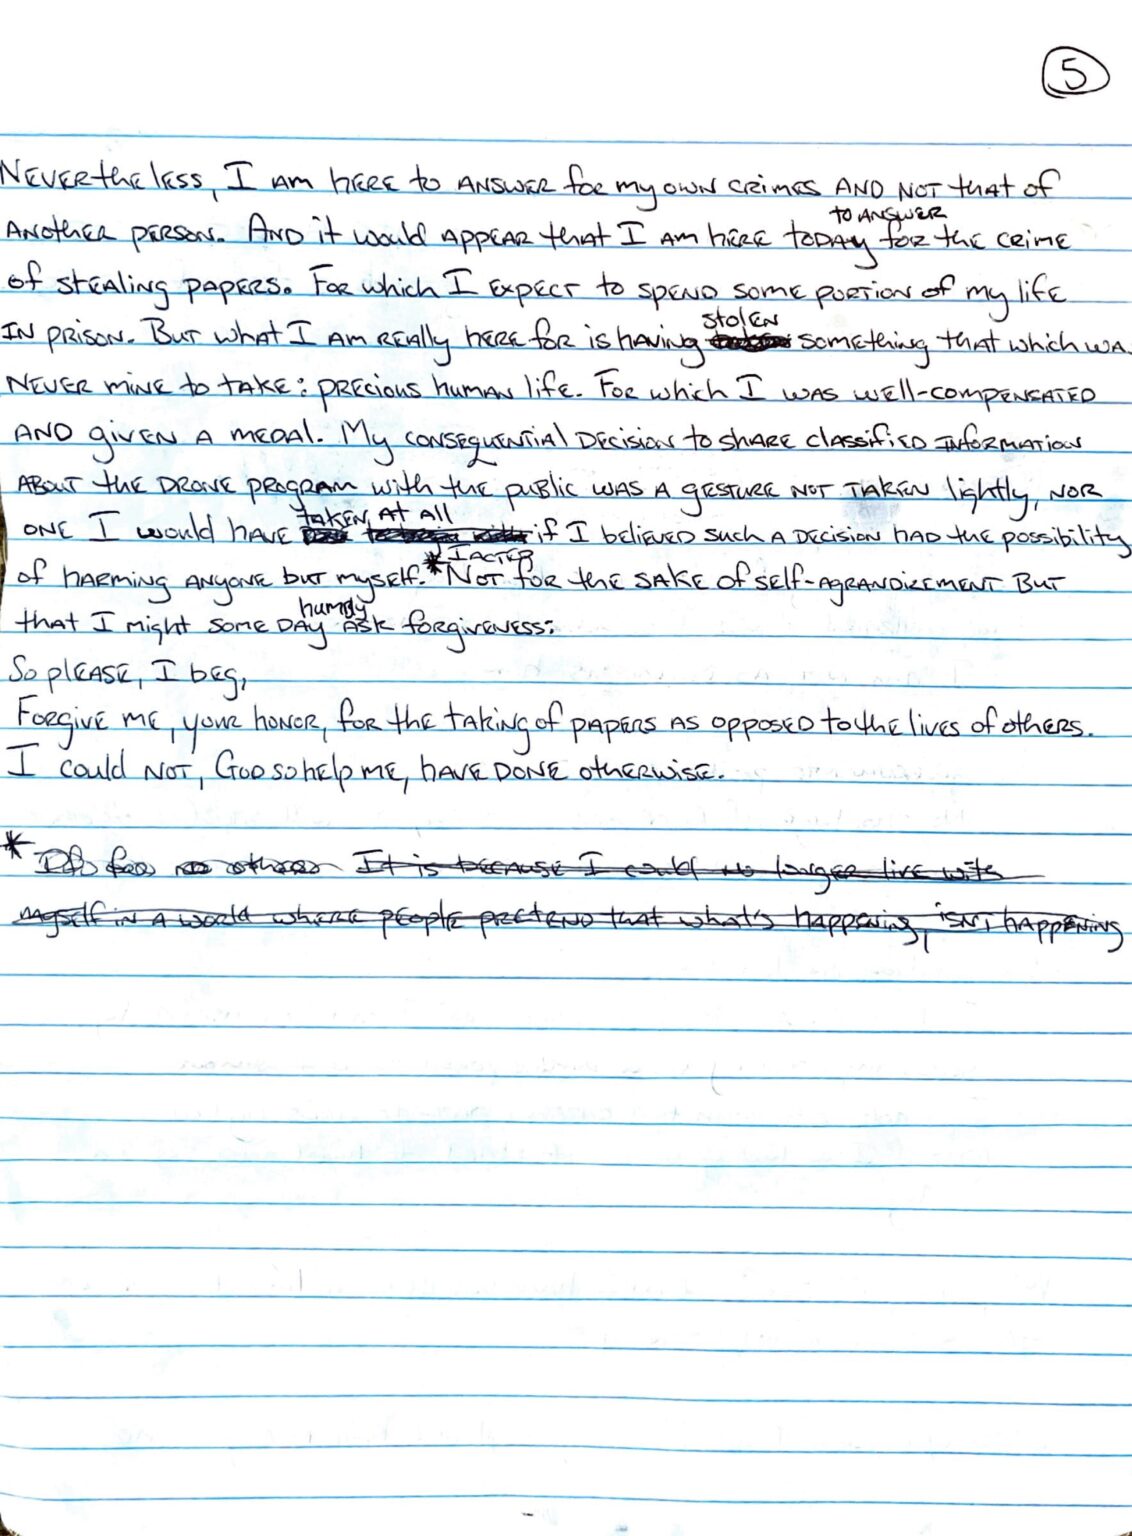 5
Nevertheless, I am here to answer for my own crimes and not that of
to answer
another person. And it would appear that I am here today for the crime
of stealing papers. For which I expect to spend some portion of my life
stolen
in prison. But what I am really here for is having something that which wa
never mine to take: precious human life. For which I was well-compensated
and given a medal. My consequential decision to share classified information
about the drone program with the public was a gesture not taken lightly, nor
taken at all
one I would have if I believed such a decision had the possibility
I acted
of harming anyone but myself. * Not for the sake of self-agrandizement but
humbly
that I might some day ask forgiveness:
So please, I beg,
Forgive me, your honor, for the taking of papers as opposed to the lives of others.
I could not, God so help me, have done otherwise.
* others It is because I could no longer live with
myself in a world where people pretend that what's happening, isn't happening